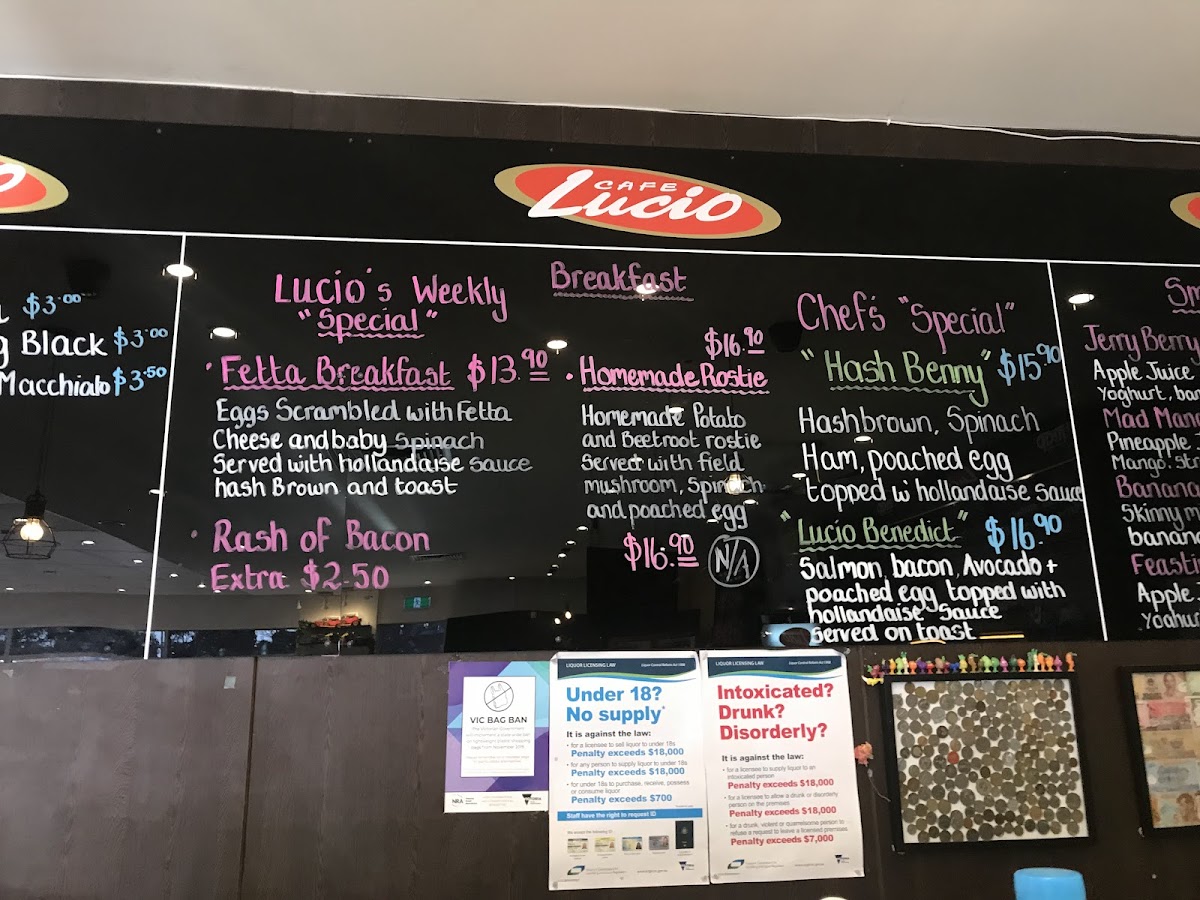 CAFE
Lucio
$3.00
Black $3.00
Macchiato $3.50
Lucio's Weekly
"Special"
Breakfast
• Fetta Breakfast $13.90
Eggs Scrambled with Fetta
Cheese and baby Spinach
Served with hollandaise sauce
hash Brown and toast
• Rash of Bacon
Extra $2.50
$16.90
• Homemade Rostie
Homemade Potato
and Beetroot rostie
Served with field
mushroom, Spinach
and poached egg
$16.90 N/A
Chef's "Special"
"Hash Benny" $15.90
Hashbrown, Spinach
Ham, poached egg
topped w' hollandaise sauce
"Lucio Benedict" $16.90
Salmon, bacon, Avocado +
poached egg topped with
hollandaise sauce
Served on toast
Sm
Jerry Berry
Apple Juice
Yoghurt, ban
Mad Man
Pineapple
Mango. Str
Banana
Skinny m
banana
Feastin
Apple
Yoghur
VIC BAG BAN
NRA
LIQUOR LICENSING LAW
Under 18?
No supply*
It is against the law:
• for a licensee to sell liquor to under 18s
Penalty exceeds $18,000
• for any person to supply liquor to under 18s
Penalty exceeds $18,000
• for under 18s to purchase, receive, possess
or consume liquor
Penalty exceeds $700
Staff have the right to request ID
We accept the following ID
LIQUOR LICENSING LAW
Intoxicated?
Drunk?
Disorderly?
It is against the law:
• for a licensee to supply liquor to an
intoxicated person
Penalty exceeds $18,000
• for a licensee to allow a drunk or disorderly
person on the premises
Penalty exceeds $18,000
• for a drunk, violent or quarrelsome person to
refuse a request to leave a licensed premises
Penalty exceeds $7,000